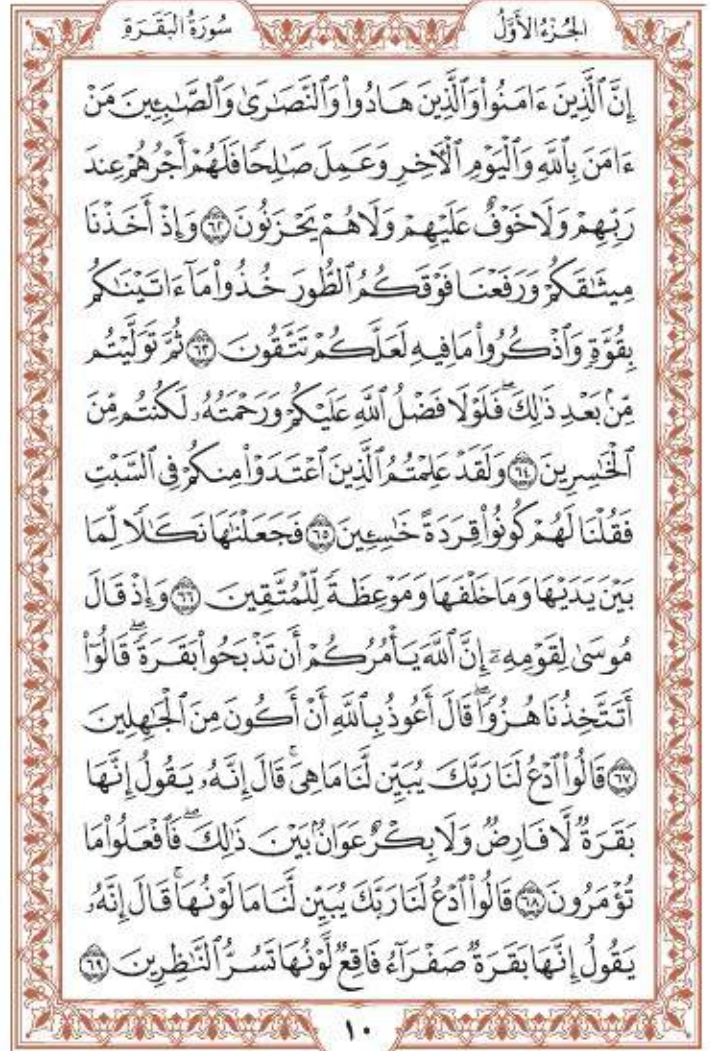 الجُزْءُ الأَوَّلُ
سُورَةُ البَقَرَةِ
إِنَّ ٱلَّذِينَ ءَامَنُواْ وَٱلَّذِينَ هَادُواْ وَٱلنَّصَٰرَىٰ وَٱلصَّٰبِـِٔينَ مَنْ
ءَامَنَ بِٱللَّهِ وَٱلْيَوْمِ ٱلْأٓخِرِ وَعَمِلَ صَٰلِحًا فَلَهُمْ أَجْرُهُمْ عِندَ
رَبِّهِمْ وَلَا خَوْفٌ عَلَيْهِمْ وَلَا هُمْ يَحْزَنُونَ ٦٢ وَإِذْ أَخَذْنَا
مِيثَٰقَكُمْ وَرَفَعْنَا فَوْقَكُمُ ٱلطُّورَ خُذُواْ مَآ ءَاتَيْنَٰكُم
بِقُوَّةٍ وَٱذْكُرُواْ مَا فِيهِ لَعَلَّكُمْ تَتَّقُونَ ٦٣ ثُمَّ تَوَلَّيْتُم
مِّنۢ بَعْدِ ذَٰلِكَۖ فَلَوْلَا فَضْلُ ٱللَّهِ عَلَيْكُمْ وَرَحْمَتُهُۥ لَكُنتُم مِّنَ
ٱلْخَٰسِرِينَ ٦٤ وَلَقَدْ عَلِمْتُمُ ٱلَّذِينَ ٱعْتَدَوْاْ مِنكُمْ فِى ٱلسَّبْتِ
فَقُلْنَا لَهُمْ كُونُواْ قِرَدَةً خَٰسِـِٔينَ ٦٥ فَجَعَلْنَٰهَا نَكَٰلًا لِّمَا
بَيْنَ يَدَيْهَا وَمَا خَلْفَهَا وَمَوْعِظَةً لِّلْمُتَّقِينَ ٦٦ وَإِذْ قَالَ
مُوسَىٰ لِقَوْمِهِۦٓ إِنَّ ٱللَّهَ يَأْمُرُكُمْ أَن تَذْبَحُواْ بَقَرَةًۖ قَالُوٓاْ
أَتَتَّخِذُنَا هُزُوًاۖ قَالَ أَعُوذُ بِٱللَّهِ أَنْ أَكُونَ مِنَ ٱلْجَٰهِلِينَ
٦٧ قَالُواْ ٱدْعُ لَنَا رَبَّكَ يُبَيِّن لَّنَا مَا هِىَۚ قَالَ إِنَّهُۥ يَقُولُ إِنَّهَا
بَقَرَةٌ لَّا فَارِضٌ وَلَا بِكْرٌ عَوَانٌۢ بَيْنَ ذَٰلِكَۖ فَٱفْعَلُواْ مَا
تُؤْمَرُونَ ٦٨ قَالُواْ ٱدْعُ لَنَا رَبَّكَ يُبَيِّن لَّنَا مَا لَوْنُهَاۚ قَالَ إِنَّهُۥ
يَقُولُ إِنَّهَا بَقَرَةٌ صَفْرَآءُ فَاقِعٌ لَّوْنُهَا تَسُرُّ ٱلنَّٰظِرِينَ ٦٩
١٠